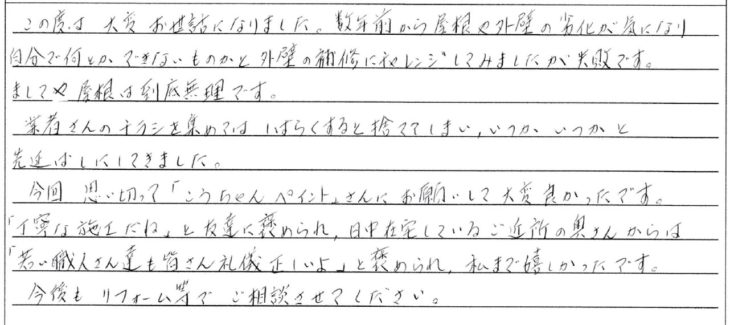 この度は 大変 お世話になりました。数年前から屋根や外壁の劣化が気になり
自分で何とか できないものかと 外壁の補修にチャレンジしてみましたが失敗です。
ましてや 屋根は到底無理です。
業者さんのチラシを集めては しばらくすると捨ててしまい、いつか いつか と
先延ばしにしてきました。
今回 思い切って「こうちゃんペイント」さんに お願いして 大変良かったです。
「丁寧な施工だね」と 友達に褒められ、日中在宅している ご近所の奥さんからは
「若い職人さん達も皆さん礼儀正しいよ」と褒められ、私まで嬉しかったです。
今後も リフォーム等で ご相談させてください。